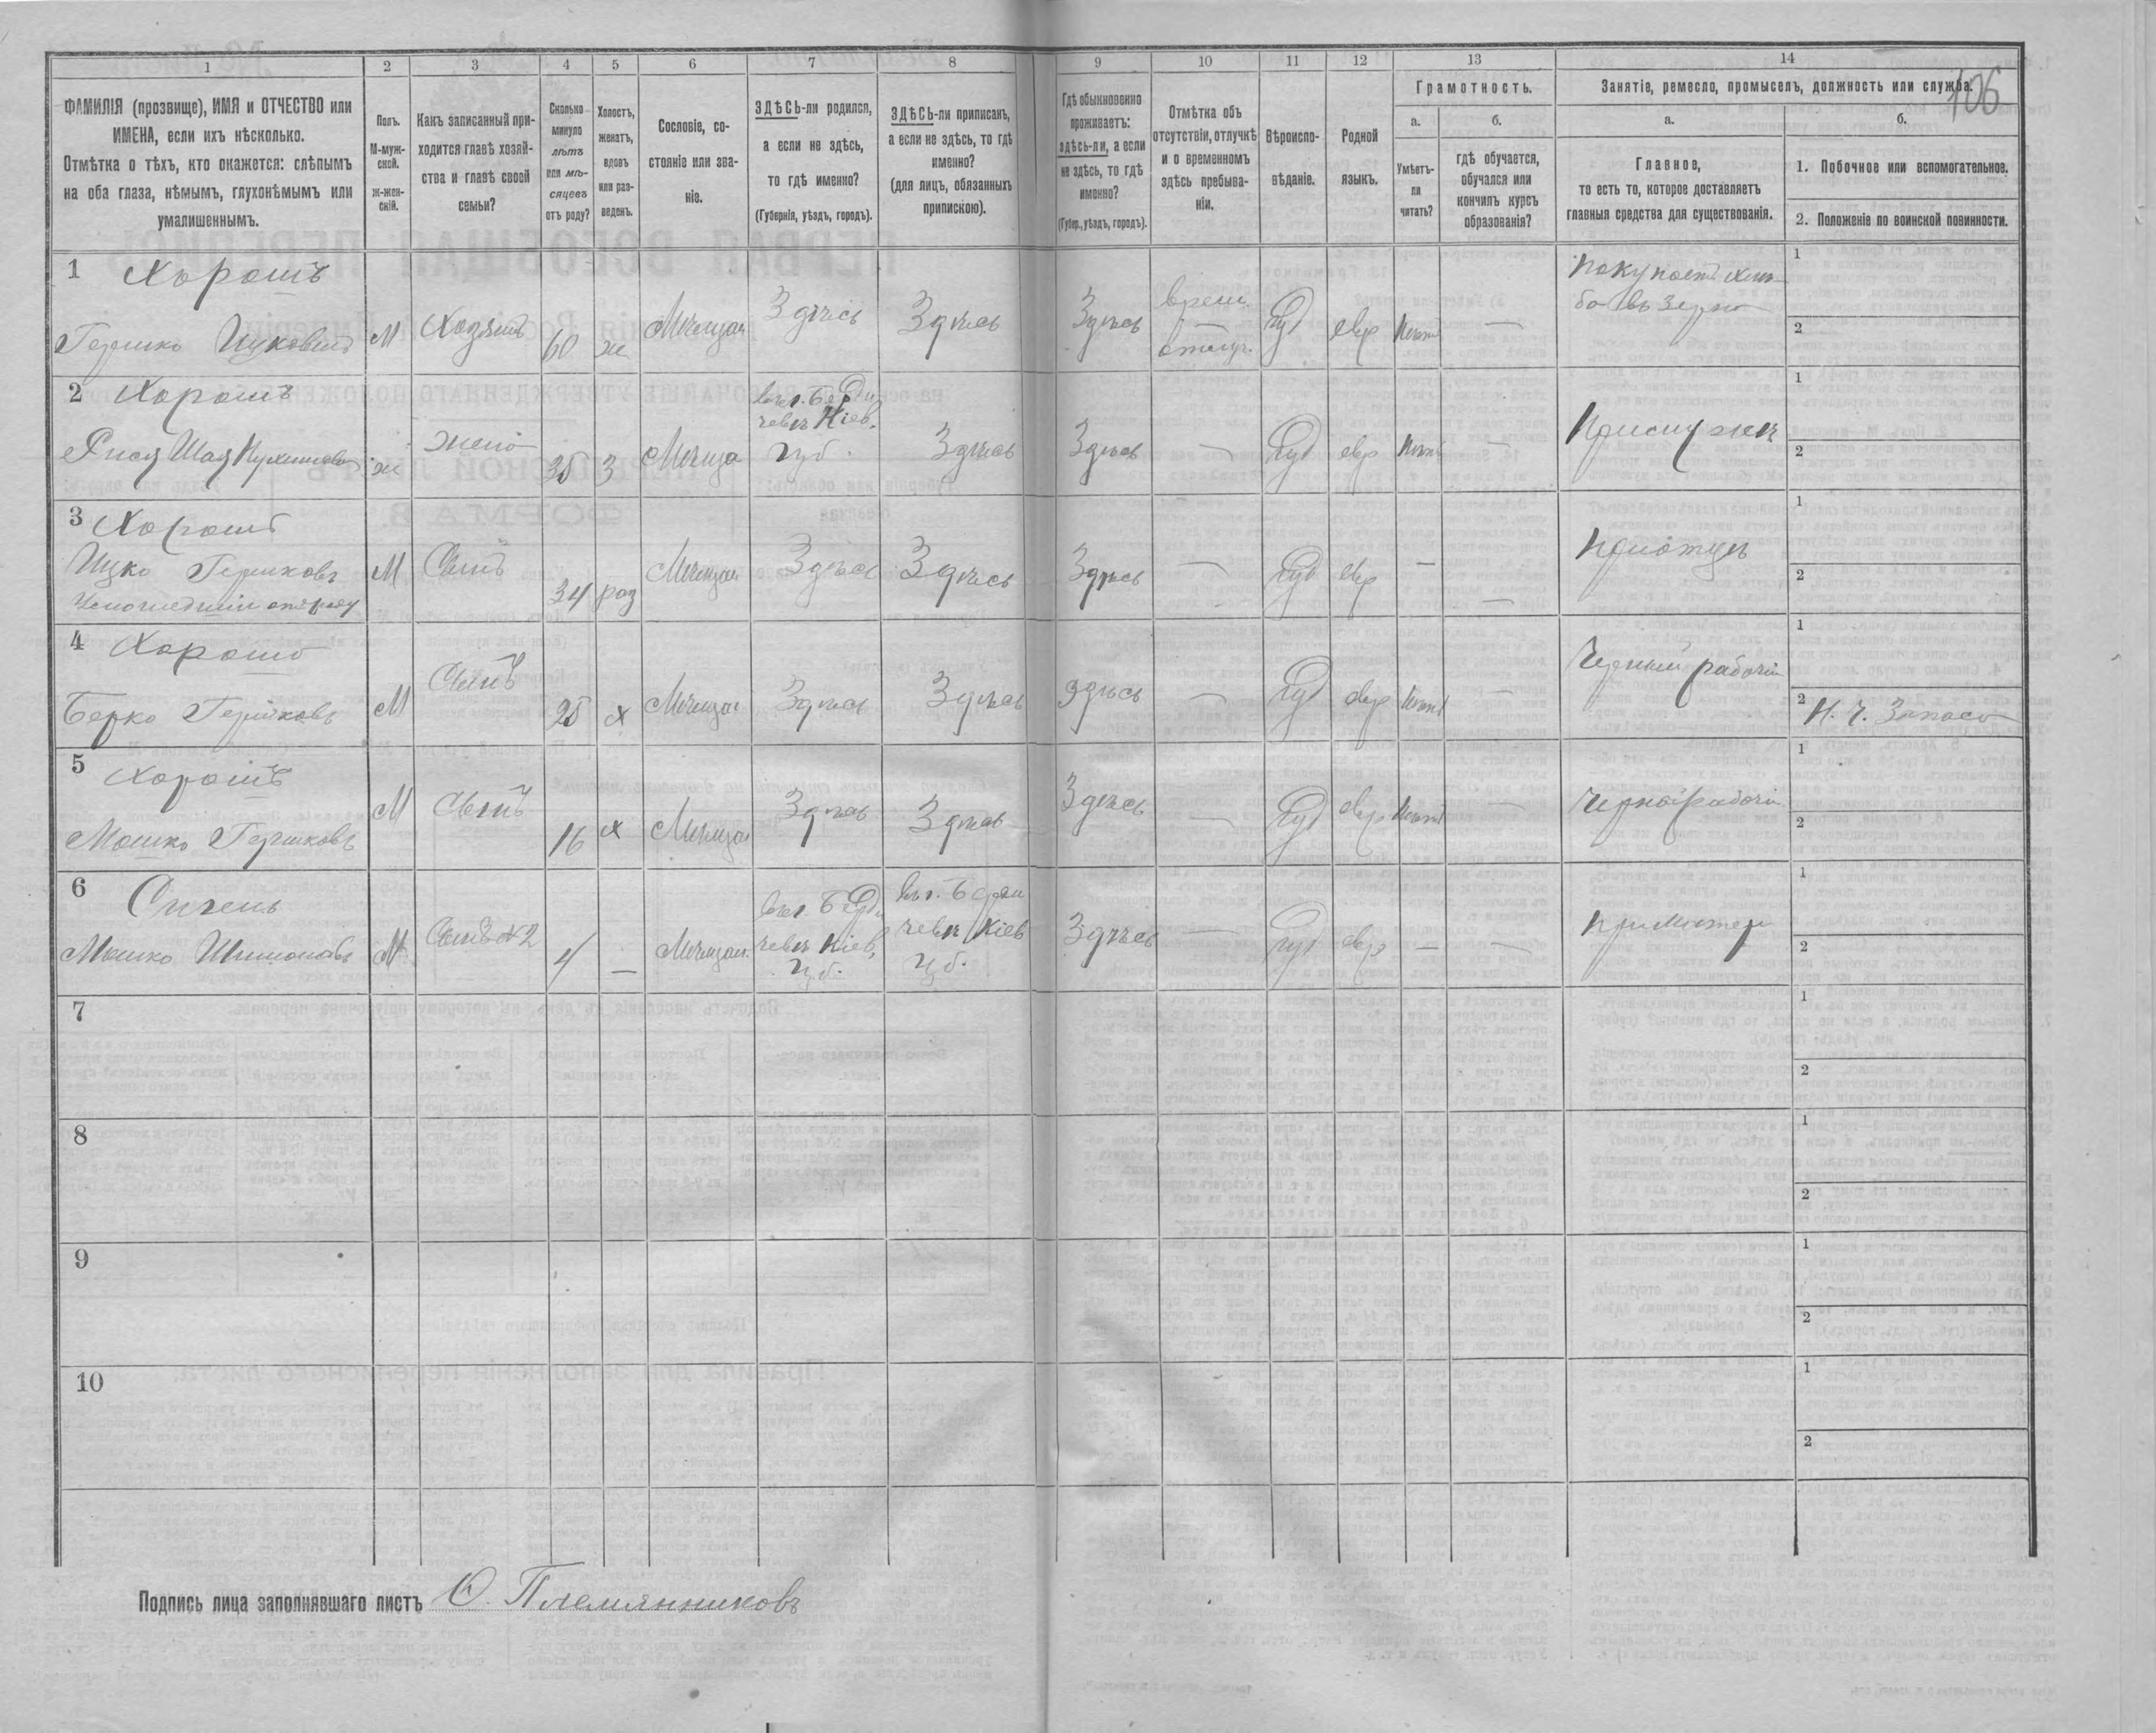 106
1 2 3 4 5 6 7 8 9 10 11 12 13 14
ФАМИЛІЯ (прозвище), ИМЯ и ОТЧЕСТВО или
ИМЕНА, если ихъ нѣсколько.
Отмѣтка о тѣхъ, кто окажется: слѣпымъ
на оба глаза, нѣмымъ, глухонѣмымъ или
умалишеннымъ.
Полъ.
М-муж-
ской.
Ж-жен-
скій.
Какъ записанный при-
ходится главѣ хозяй-
ства и главѣ своей
семьи?
Сколько
минуло
лѣтъ
или мѣ-
сяцевъ
отъ роду?
Холостъ,
женатъ,
вдовъ
или раз-
веденъ.
Сословіе, со-
стояніе или зва-
ніе.
ЗДѢСЬ-ли родился,
а если не здѣсь,
то гдѣ именно?
(Губернія, уѣздъ, городъ).
ЗДѢСЬ-ли приписанъ,
а если не здѣсь, то гдѣ
именно?
(для лицъ, обязанныхъ
припискою).
Гдѣ обыкновенно
проживаетъ:
здѣсь-ли, а если
не здѣсь, то гдѣ
именно?
(Губер., уѣздъ, городъ).
Отмѣтка объ
отсутствіи, отлучкѣ
и о временномъ
здѣсь пребыва-
ніи.
Вѣроиспо-
вѣданіе.
Родной
языкъ.
Грамотность.
а.
Умѣетъ-
ли
читать?
б.
гдѣ обучается,
обучался или
кончилъ курсъ
образованія?
Занятіе, ремесло, промыселъ, должность или служба.
а.
Главное,
то есть то, которое доставляетъ
главныя средства для существованія.
б.
1. Побочное или вспомогательное.
2. Положеніе по воинской повинности.
1 Хорошъ
Гершко Ицковичъ М Хозяинъ 60 ж Мѣщан Здѣсь Здѣсь Здѣсь врем. отлуч. Іуд евр —
бо въ зерно
1
2
2 Хорошъ
жена 35 З Мѣща въ г. Берди
чевѣ Кіев.
губ. Здѣсь Здѣсь — Іуд евр —
1
2
3 Хорошъ
Ицко Гершковъ М Сынъ 34 раз Мѣщан Здѣсь Здѣсь Здѣсь — Іуд евр — —
При отцѣ
1
2
4 Хорошъ
Берко Гершковъ М Сынъ 25 х Мѣщан Здѣсь Здѣсь Здѣсь — Іуд евр —
Черный рабочій
1
2 Н. Ч. Запаса
5 Хорошъ
Мошко Гершковъ М Сынъ 16 х Мѣщан Здѣсь Здѣсь Здѣсь — Іуд евр —
Черный рабочій
1
2
6
Мошко Шимоновъ М Сынъ №2 4 — Мѣщан. въ г. Берди
чевѣ Кіев,
губ. въ г. Берди
чевѣ Кіев
губ. Здѣсь — Іуд евр — —
При матери
1
2
7
1
2
8
1
2
9
1
2
10
1
2
Подпись лица заполнявшаго листъ О. Племянниковъ